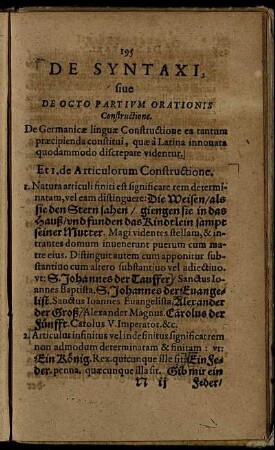 195
DE SYNTAXI,
siue
DE OCTO PARTIVM ORATIONIS
Constructione.
De Germanicæ linguæ Constructione ea tantum
præcipienda constitui, quæ à Latina innouata
quodammodo discrepare videntur.
Et 1. de Articulorum Constructione.
1. Natura articuli finiti est significare rem determi-
natam, vel eam distinguere: Die Weisen/als
sie den Stern sahen/ giengen sie in das
Hauß/vnd funden das Kindlein sampt
seiner Mutter. Magi videntes stellam, & in-
trantes domum inuenerunt puerum cum ma-
tre eius. Distinguit autem cum apponitur sub-
stantiuo cum altero substantiuo vel adiectiuo.
vt: S. Johannes der Tauffer/ Sanctus Io-
annes Baptista. S. Johannes der Euange-
list. Sanctus Ioannes Euangelista. Alexander
der Groß/Alexander Magnus. Carolus der
Fünfft. Carolus V. Imperator. &c.
2. Articulus infinitus vel indefinitus significat rem
non admodum determinatam & finitam: vt:
Ein König. Rex. quicunque ille sit. Ein Fe-
der. penna. quæcunque illa sit. Gib mir ein
N ij Feder/